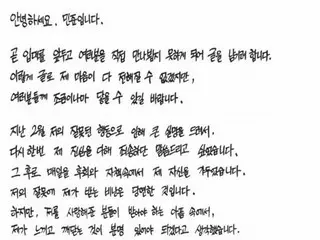 안녕하세요. 민준입니다.
곧 입대를 앞두고 여러분을 직접 만나뵙지 못하게 되어 글을 남기려 합니다.
이렇게 글로 제 마음이 다 전해질 수 없겠지만,
여러분들께 조금이나마 닿을 수 있길 바랍니다.
지난 2월 저의 잘못된 행동으로 인해 큰 실망을 드려서,
다시 한번 제 진심을 다해 죄송하단 말씀드리고 싶었습니다.
그 후로 매일을 후회와 자책속에서 제 자신을
저의 잘못에 제가 받는 비난은 당연한 것입니다.
하지만, 저를 사랑해준 분들이 받아야 하는 아픔 속에서,
제가 느끼고 깨닫는 것이 분명 있어야 되겠다고 생각했습니다.